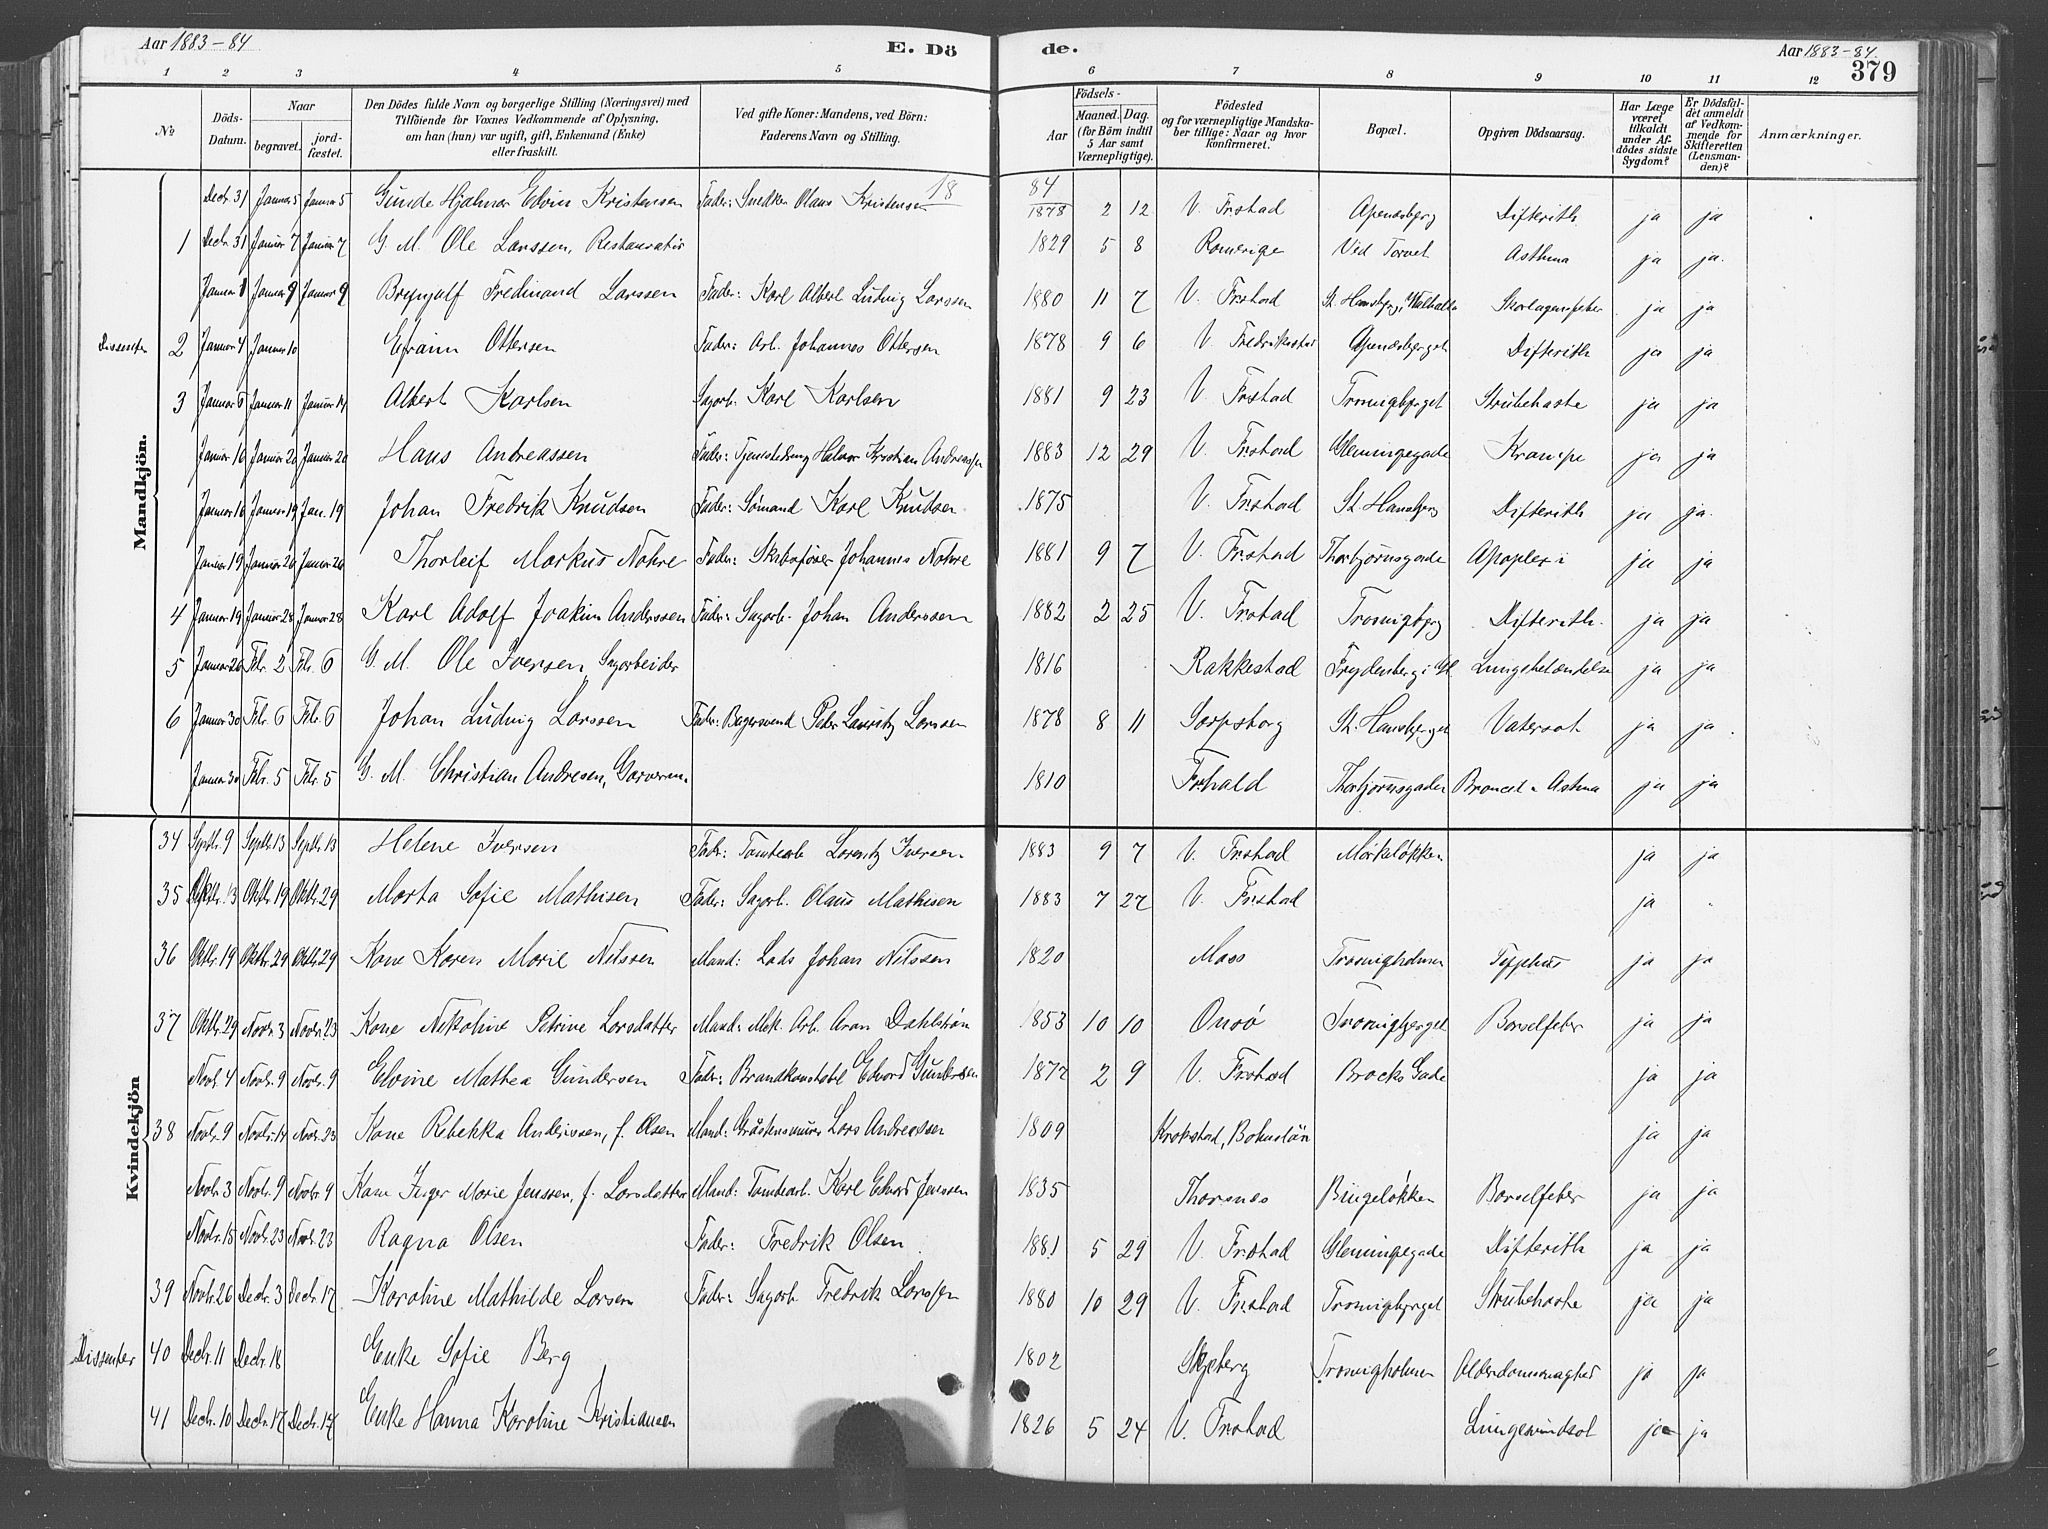 Aar 1883-84 E. Dö de. Aar 1883-84.
379
1 2 3 4 5 6 7 8 9 10 11 12
No Döds-Datum. Naar begravet. jord-fæstet. Den Dödes fulde Navn og borgerlige Stilling (Næringsvei) med Tilföiende for Voxnes Vedkommende af Oplysning, om han (hun) var ugift, gift, Enkemand (Enke) eller fraskilt. Ved gifte Koner: Mandens, ved Börn: Faderens Navn og Stilling. Födsels- Aar Maaned. Dag. (for Börn indtil 5 Aar samt Værnepligtige). Födested og for værnepligtige Mandskaber tillige: Naar og hvor konfirmeret. Bopæl. Opgiven Dödsaarsag. Har Læge været tilkaldt under Afdödes sidste Sygdom? Er Dödsfaldet anmeldt af Vedkommende for Skifteretten (Lensmanden)? Anmærkninger.
Mandkjön.
18 84
Decbr. 31 Januar 5 Januar 5 Gunde Hjalmar Edvin Kristensen Fader: Snedker Olaus Kristensen 1878 2 12 V. Frstad Apenæsbjerg Difterith ja ja
1 Decbr. 31 Januar 7 Januar 7 G. M. Ole Larssen, Restauratör 1829 5 8 Romerige Ved Torvet Asthma ja ja.
Januar Januar 9 Januar 9 Brynjulf Fredinand Larssen Fader: Karl Albert Ludvig Larssen 1880 11 7 V. Frstad St. Hansbjerg, Walhalla Skarlagensfeber ja ja
Dissenter 2 Januar 4 Januar 10 Efraim Ottersen Fader: Arb. Johannes Ottersen 1878 9 6 V. Fredrikstad Apenæsbjerget Difterith ja ja
3 Januar 6 Januar 11 Januar 14 Albert Karlsen Sagarb. Karl Karlsen 1881 9 23 V. Frstad Trosvigbjerget Strubehoste ja ja
Januar 16 Januar 20 Januar 20 Hans Andreassen Fader: Halvor Kristian Andreassen 1883 12 29 V. Frstad Glemmingegade Krampe ja ja
Januar 16 Januar 19 Jan. 19 Johan Fredrik Knudsen Fader: Sømand Karl Knudsen 1875 V. Frstad St. Hansbjerg Difterith ja ja.
Januar 19 Januar 26 Januar 26 Thorleif Markus Nøhre Fader: Skibsfører Johannes Nøhre 1881 9 7 V. Frstad Thorbjörnsgade Apoplexi ja ja
4 Januar 19 Januar 28 Januar 28 Karl Adolf Joakim Anderssen Fader: Sagarb. Johan Anderssen 1882 2 25 V. Frstad Trosvigbjerg Difterith. ja ja
5 Januar 26 Febr. 2 Febr. 6 G. M. Ole Iversen, Sagarbeider 1816 Rakkestad Frydenberg i Gl. Lungebetændelse ja ja
6 Januar 30 Febr. 6 Febr. 6 Johan Ludvig Larssen Fader: Bagersvend Peter Lauritz Larssen 1878 8 11 Sarpsborg St. Hansbjerget Vatersot ja ja
Januar 30 Febr. 5 Febr. 5 G. M. Christian Andresen, 1810 Frhald Thorbjörnsgaden Asthma ja ja
Kvindekjön
34 Septbr. 9 Septbr. 13 Septbr. 13 Helene Iversen Fader: Tomtearb. Lorentz Iversen 1883 9 7 V. Frstad Mørkeløkken ja ja
35 Oktbr. 13 Oktbr. 19 Oktbr. 29 Marta Sofie Mathisen Fader: Sagarb. Olaus Mathisen 1883 7 27 V. Frstad ja
36 Oktbr. 19 Oktbr. 29 Oktbr. 29 Kone Karen Marie Nilssen Mand: Lods Johan Nilssen 1820 Moss Trosvigholmen Typhus ja ja
37 Oktbr. 29 Novbr. 3 Novbr. 23 Kone Nikoline Petrine Larsdatter Mand: Mek. Arb. Aron Dahlström 1853 10 10 Onsö Trosvigbjerget Barselfeber ja ja
Novbr. 4 Novbr. 9 Novbr. 9 Elvine Mathea Gundersen Fader: Brandkonstabel Edvard Gundersen 1872 2 9 V. Frstad Brocks Gade ja ja
38 Novbr. 9 Novbr. 14 Novbr. 23 Kone Rebekka Anderssen, f. Olsen Mand: Gråstensmurer Lars Andreassen 1809 Krokstad, Bohuslän ja ja
Novbr. 3 Novbr. 9 Novbr. 9 Kone Inger Marie Jenssen, f. Larsdatter Mand: Tomtearb. Karl Edvard Jenssen 1835 Thorsnes Bingeløkken Barselfeber ja ja
Novbr. 15 Novbr. 23 Novbr. 23 Ragna Olsen Fader: Fredrik Olsen 1881 5 29 V. Frstad Glemmingegade Difterith ja ja
39 Novbr. 26 Decbr. 3 Decbr. 17 Karoline Mathilde Larsen Fader: Sagarb. Fredrik Larssen 1880 10 29 V. Frstad Trosvigbjerget Strubehoste ja ja
Dissenter 40 Decbr. 11 Decbr. 18 Enke Sofie Berg 1802 Skjeberg Trosvigholmen Alderdomssvaghed ja ja
41 Decbr. 10 Decbr. 17 Decbr. 17 Enke Hanna Karoline Kristiansen 1826 5 24 V. Frstad Lungesvindsot ja ja